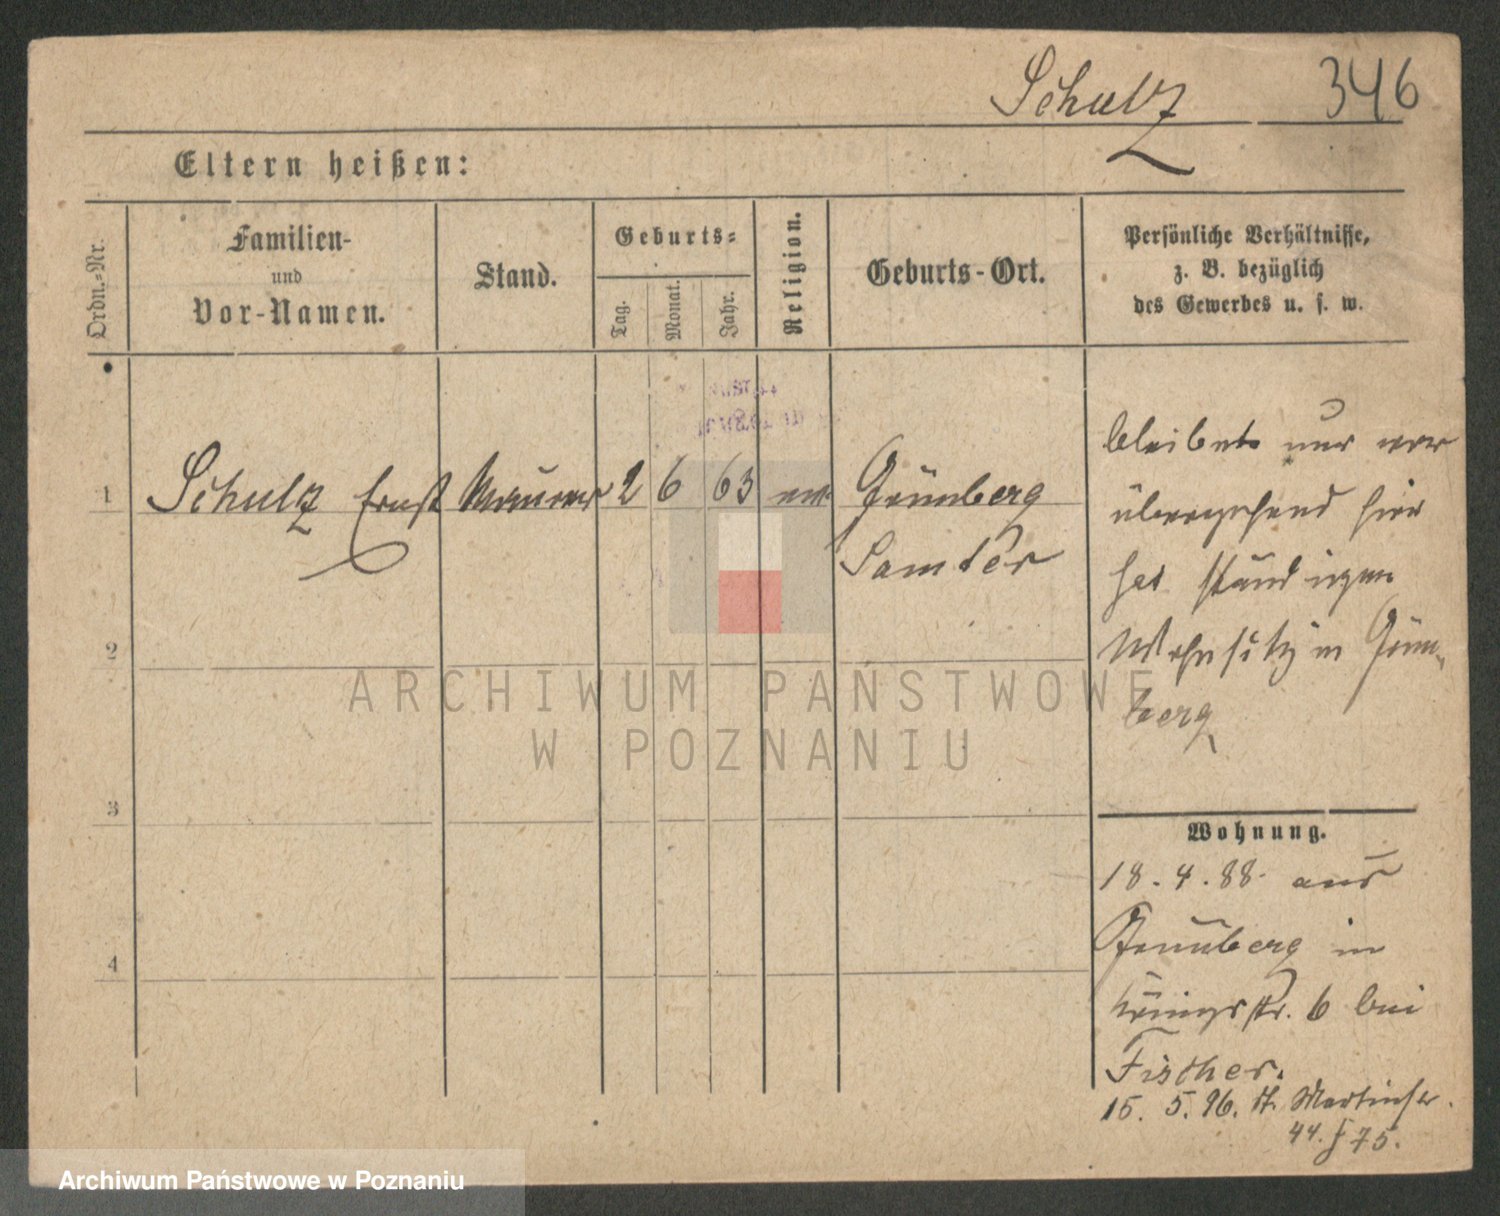 Schulz 346
Eltern heißen:
Ordn.-Nr.
Familien-
und
Vor-Namen.
Stand.
Geburts-
Tag.
Monat.
Jahr.
Religion.
Geburts-Ort.
Persönliche Verhältnisse,
z. B. bezüglich
des Gewerbes u. s. w.
1 Schulz Ernst Maurer 2 6 63 Grünberg
Samter
2
3
4
bleibt nur vor
übergehend hier
hat ständigen
Wohnsitz in Grün-
berg
Wohnung.
18.4.88. aus
Grünberg in
Königstr. 6 bei
Fischer.
15. 5. 96. St. Martinstr.
44. 75.
ARCHIWUM PAŃSTWOWE
W POZNANIU
Archiwum Państwowe w Poznaniu